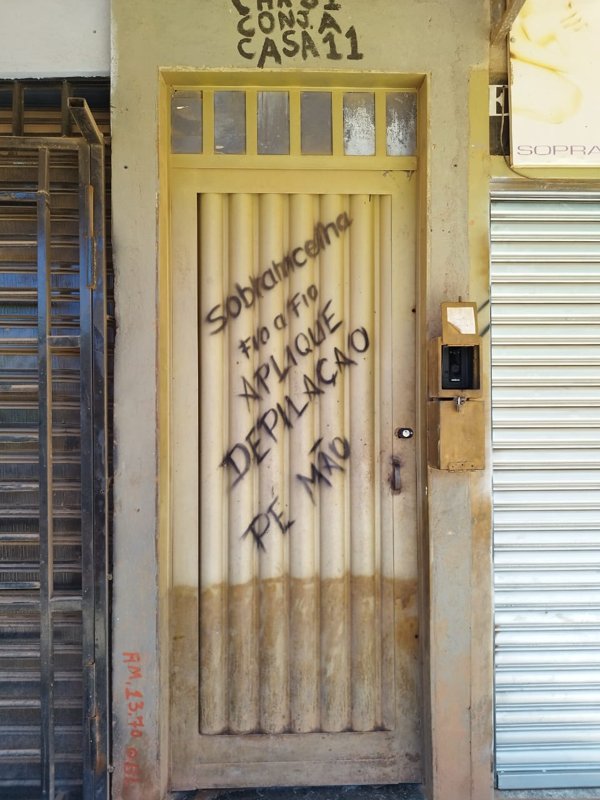 CONJ.A
CASA 11
E
SOPRA
Sobrancelha
FIO a FIO
APLIQUE
DEPILAÇAO
PÉ MÃO